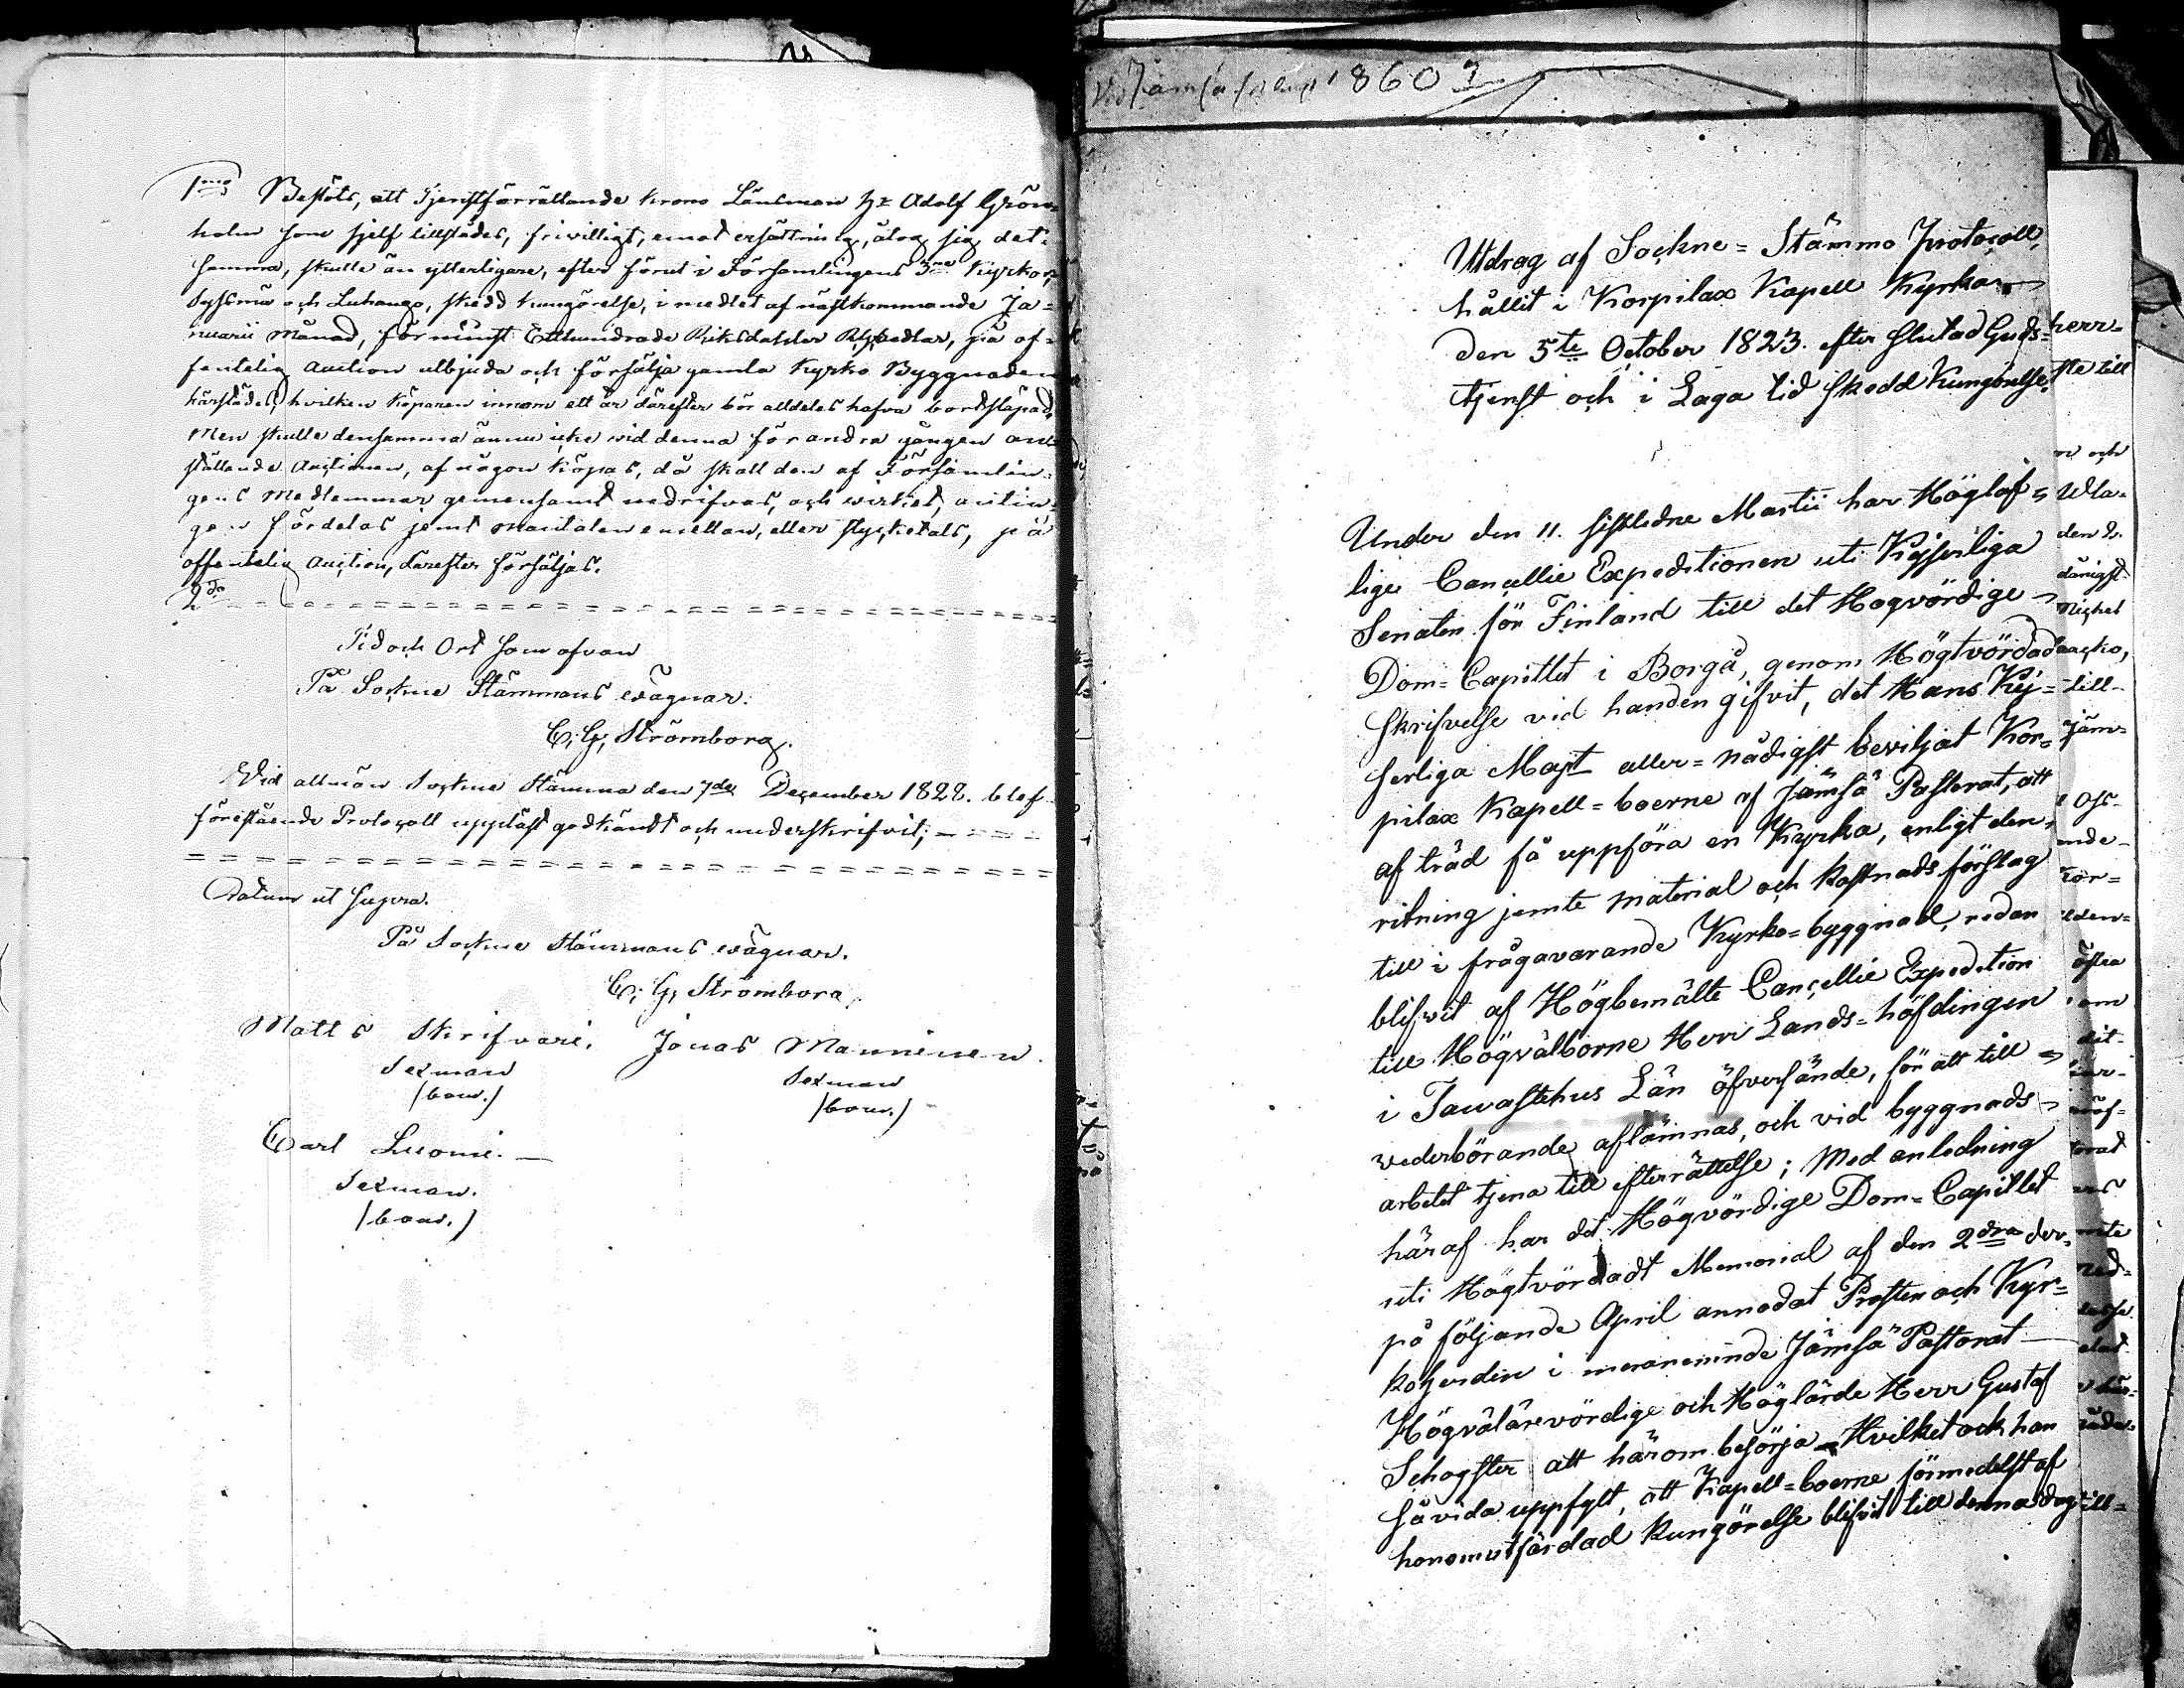 1mo Beslöts, att Tjenstförrättande Krono Länsman Hr Adolf Grön-
holm som sjelf tillstädes, frivilligt, emot ersättning, åtog sig det-
samma, skulle än ytterligare, efter förut i Församlingens 3ne Kyrkor,
Sysmä och Luhango, skedd kungörelse, i medlet af nästkommande Ja-
nuarii Månad, för minst Etthundrade Riksdahler, på of-
fentelig Auction utbjuda och försälja gamla Kyrko Byggnaden
härstädes, hvilken Köparen innom ett år därefter bör alldeles hafva bortsläpad.
Men skulle densamma ännu icke vid denna för andra gången an-
ställande Auctionen, af någon köpas, då skall den af Församlin-
gens Medlemmar gemensamt nedrifvas, och virket, antin-
gen fördelas jemt Mantalen emellan, eller stycketals, på
offentelig Auction, därefter försäljas.
2do
Tid och Ort som ofvan
På Sockne Stämmans wägnar.
C. G. Strömborg.
Vid allmän Sockne Stämma den 7de December 1828. blef
förestående Protocoll uppläst godkändt och underskrifvit;
Datum ut Supra.
På Sockne Stämmans wägnar.
C. G. Strömborg
Matts Skrifvari. Jonas Manninen.
Sexman Sexman
(bom.) (bom.)
Carl Luomi.
Sexman.
(bom.)
1860
Utdrag af Sockne-Stämmo Protocoll,
hållit i Korpilax Kapell Kyrka
den 5te October 1823. efter slutad Guds-
tjenst och i Laga tid skedd Kungörelse.
Under den 11. sistledne Martii har Höglof-
lige Cancellie Expeditionen uti Kejserliga
Senaten för Finland till det Högvördige
Dom-Capitlet i Borgå, genom Högtvördad
skrifvelse vid handen gifvit, det Hans Kej-
serliga Majt aller-nådigst beviljat Kor-
pilax Kapell-boerne af Jämsä Pastorat, att
af träd få uppföra en Kyrka, enligt den
ritning jemte Material och Kostnads förslag
till i frågavarande Kyrko-byggnad, redan
blifvit af Högbemälte Cancellie Expedition
till Högvälborne Herr Lands-höfdingen
i Tawastehus Län öfversände, för att till
wederbörande aflämnas, och vid byggnads-
arbetet tjena till efterrättelse; Med anledning
häraf har det Högvördige Dom-Capitlet
uti Högtvördadt Memorial af den 2dra der-
på följande April anmodat Prosten och Kyr-
koherden i Jämsä Pastorat
Högvälärevördige och Höglärde Herr Gustaf
att härom besörja. Hvilket ock han
såvida uppfyllt, att Kapell-boerne förmedelst af
honom utfärdad Kungörelse blifvit till denna dag